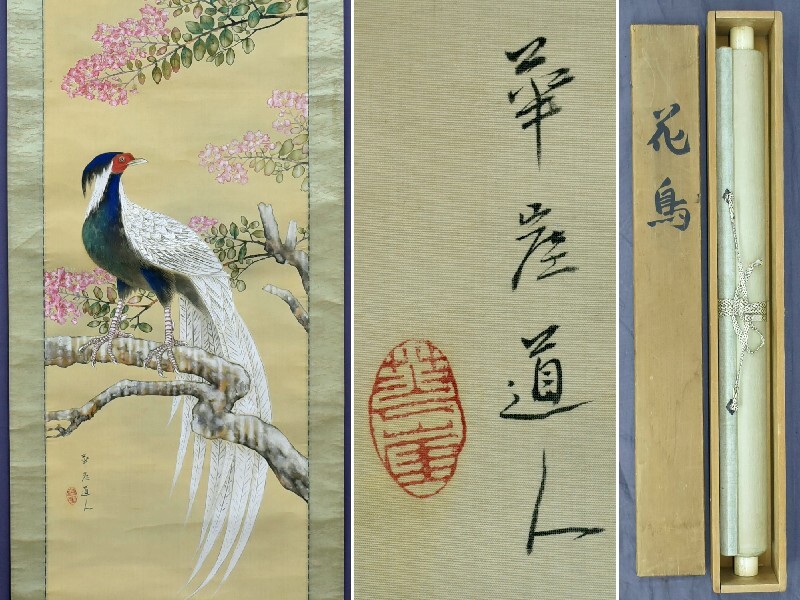 華崖道人
華崖道人
花鳥